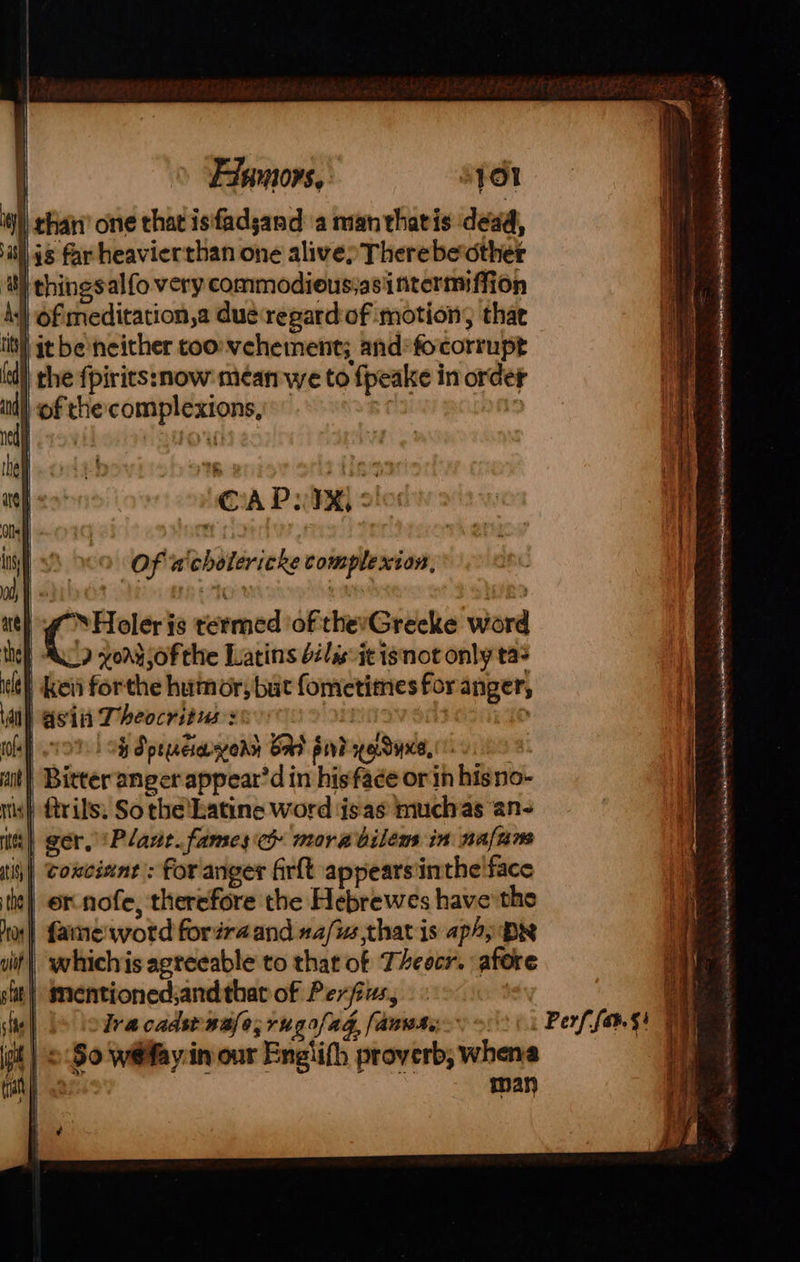 Humors, 101
than one that is ſad, and a man that is dead,
is far heavier than one alive. There be other
things alſo very commodious, as intermiſſion
of meditation, a due regard of motion, that
it be neither too vehement, and ſo corrupt
the ſpirits: now mean we to ſpeake in order
of the complexions,
CAP. IX.
Of a cholericke complexion,
CHoler is termed of the Greeke word
of the Latins bilis it is not only ta-
ken for the humor, but ſometimes for anger,
as in Theocritus:
Bitter anger appear'd in his face or in his no-
ſtrils. So the Latine word is as much as an-
ger, Plaut. fames & mora bilem in naſum
conciunt: for anger firſt appears in the face
or noſe, therefore the Hebrewes have the
ſame word for ira and naſus, that is aph, אף
which is agreeable to that of Theocr. afore
mentioned, and that of Perſius,
Ira cadat naſo, rugoſaq, ſanna. Perſ. ſat. 5.
So we ſay in our Engliſh proverb, when a
man